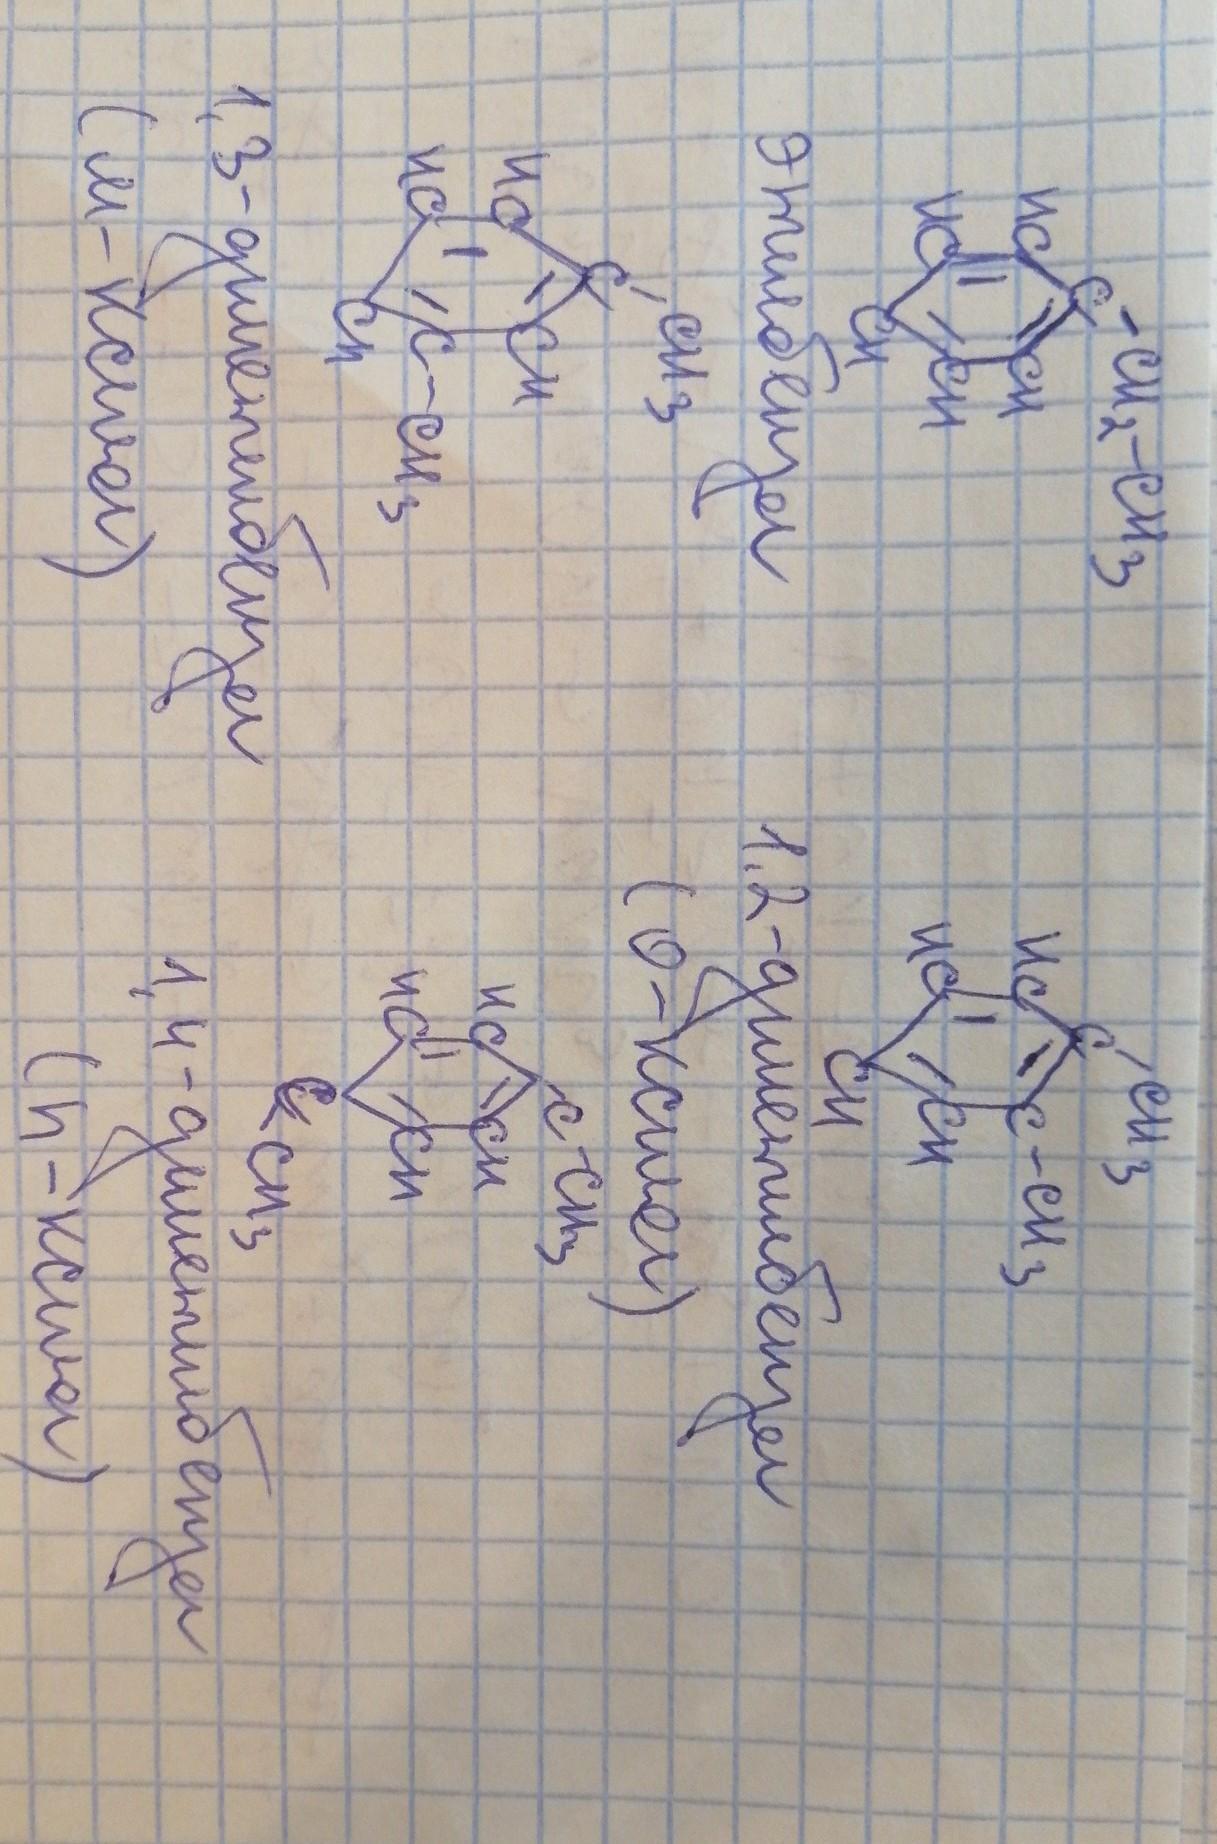 C-CH2-CH3
HC CH
HC CH
CH
Этилбензол
C-CH3
HC C-CH3
HC CH
CH
1,2-диметилбензол
(о-Ксилол)
C-CH3
HC CH
HC C-CH3
CH
1,3-диметилбензол
(м-Ксилол)
C-CH3
HC CH
HC CH
C-CH3
1,4-диметилбензол
(п-Ксилол)